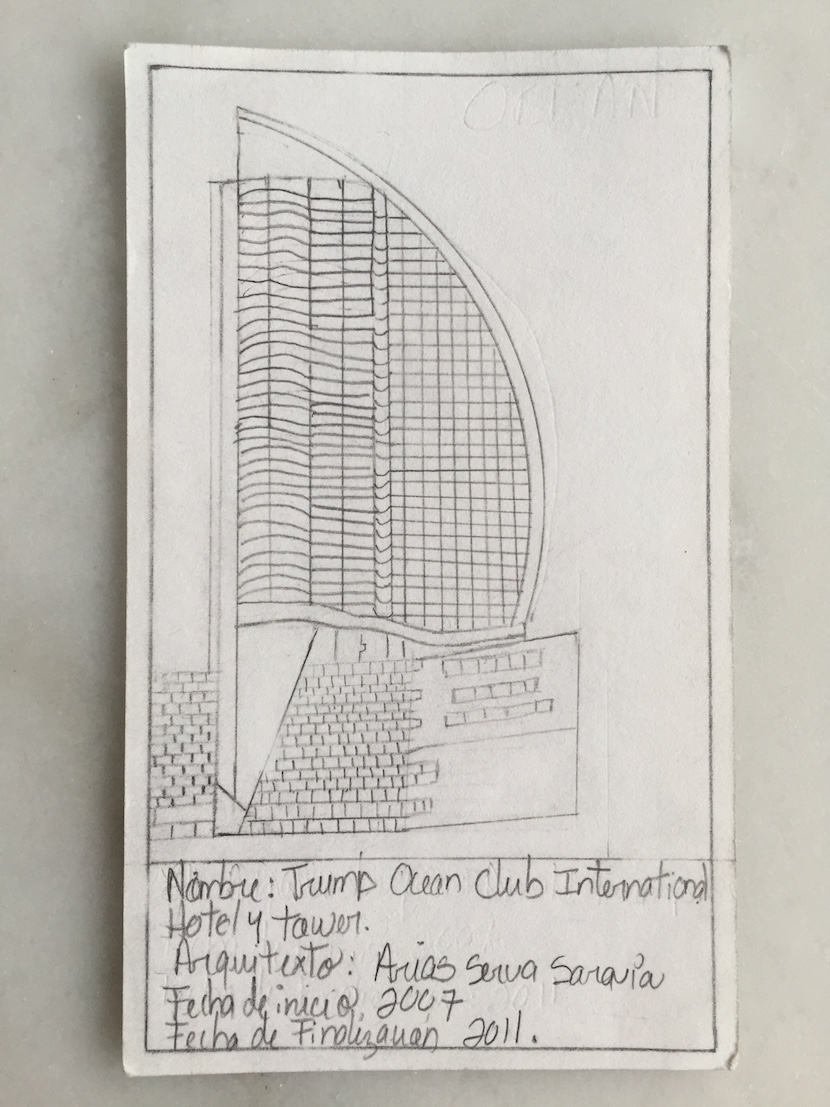 OCEAN
Nombre: Trump Ocean Club International
Hotel y tower.
Arquitexto: Arias Serua Saravia
Fecha de inicio, 2007
Fecha de Finalizauan 2011.